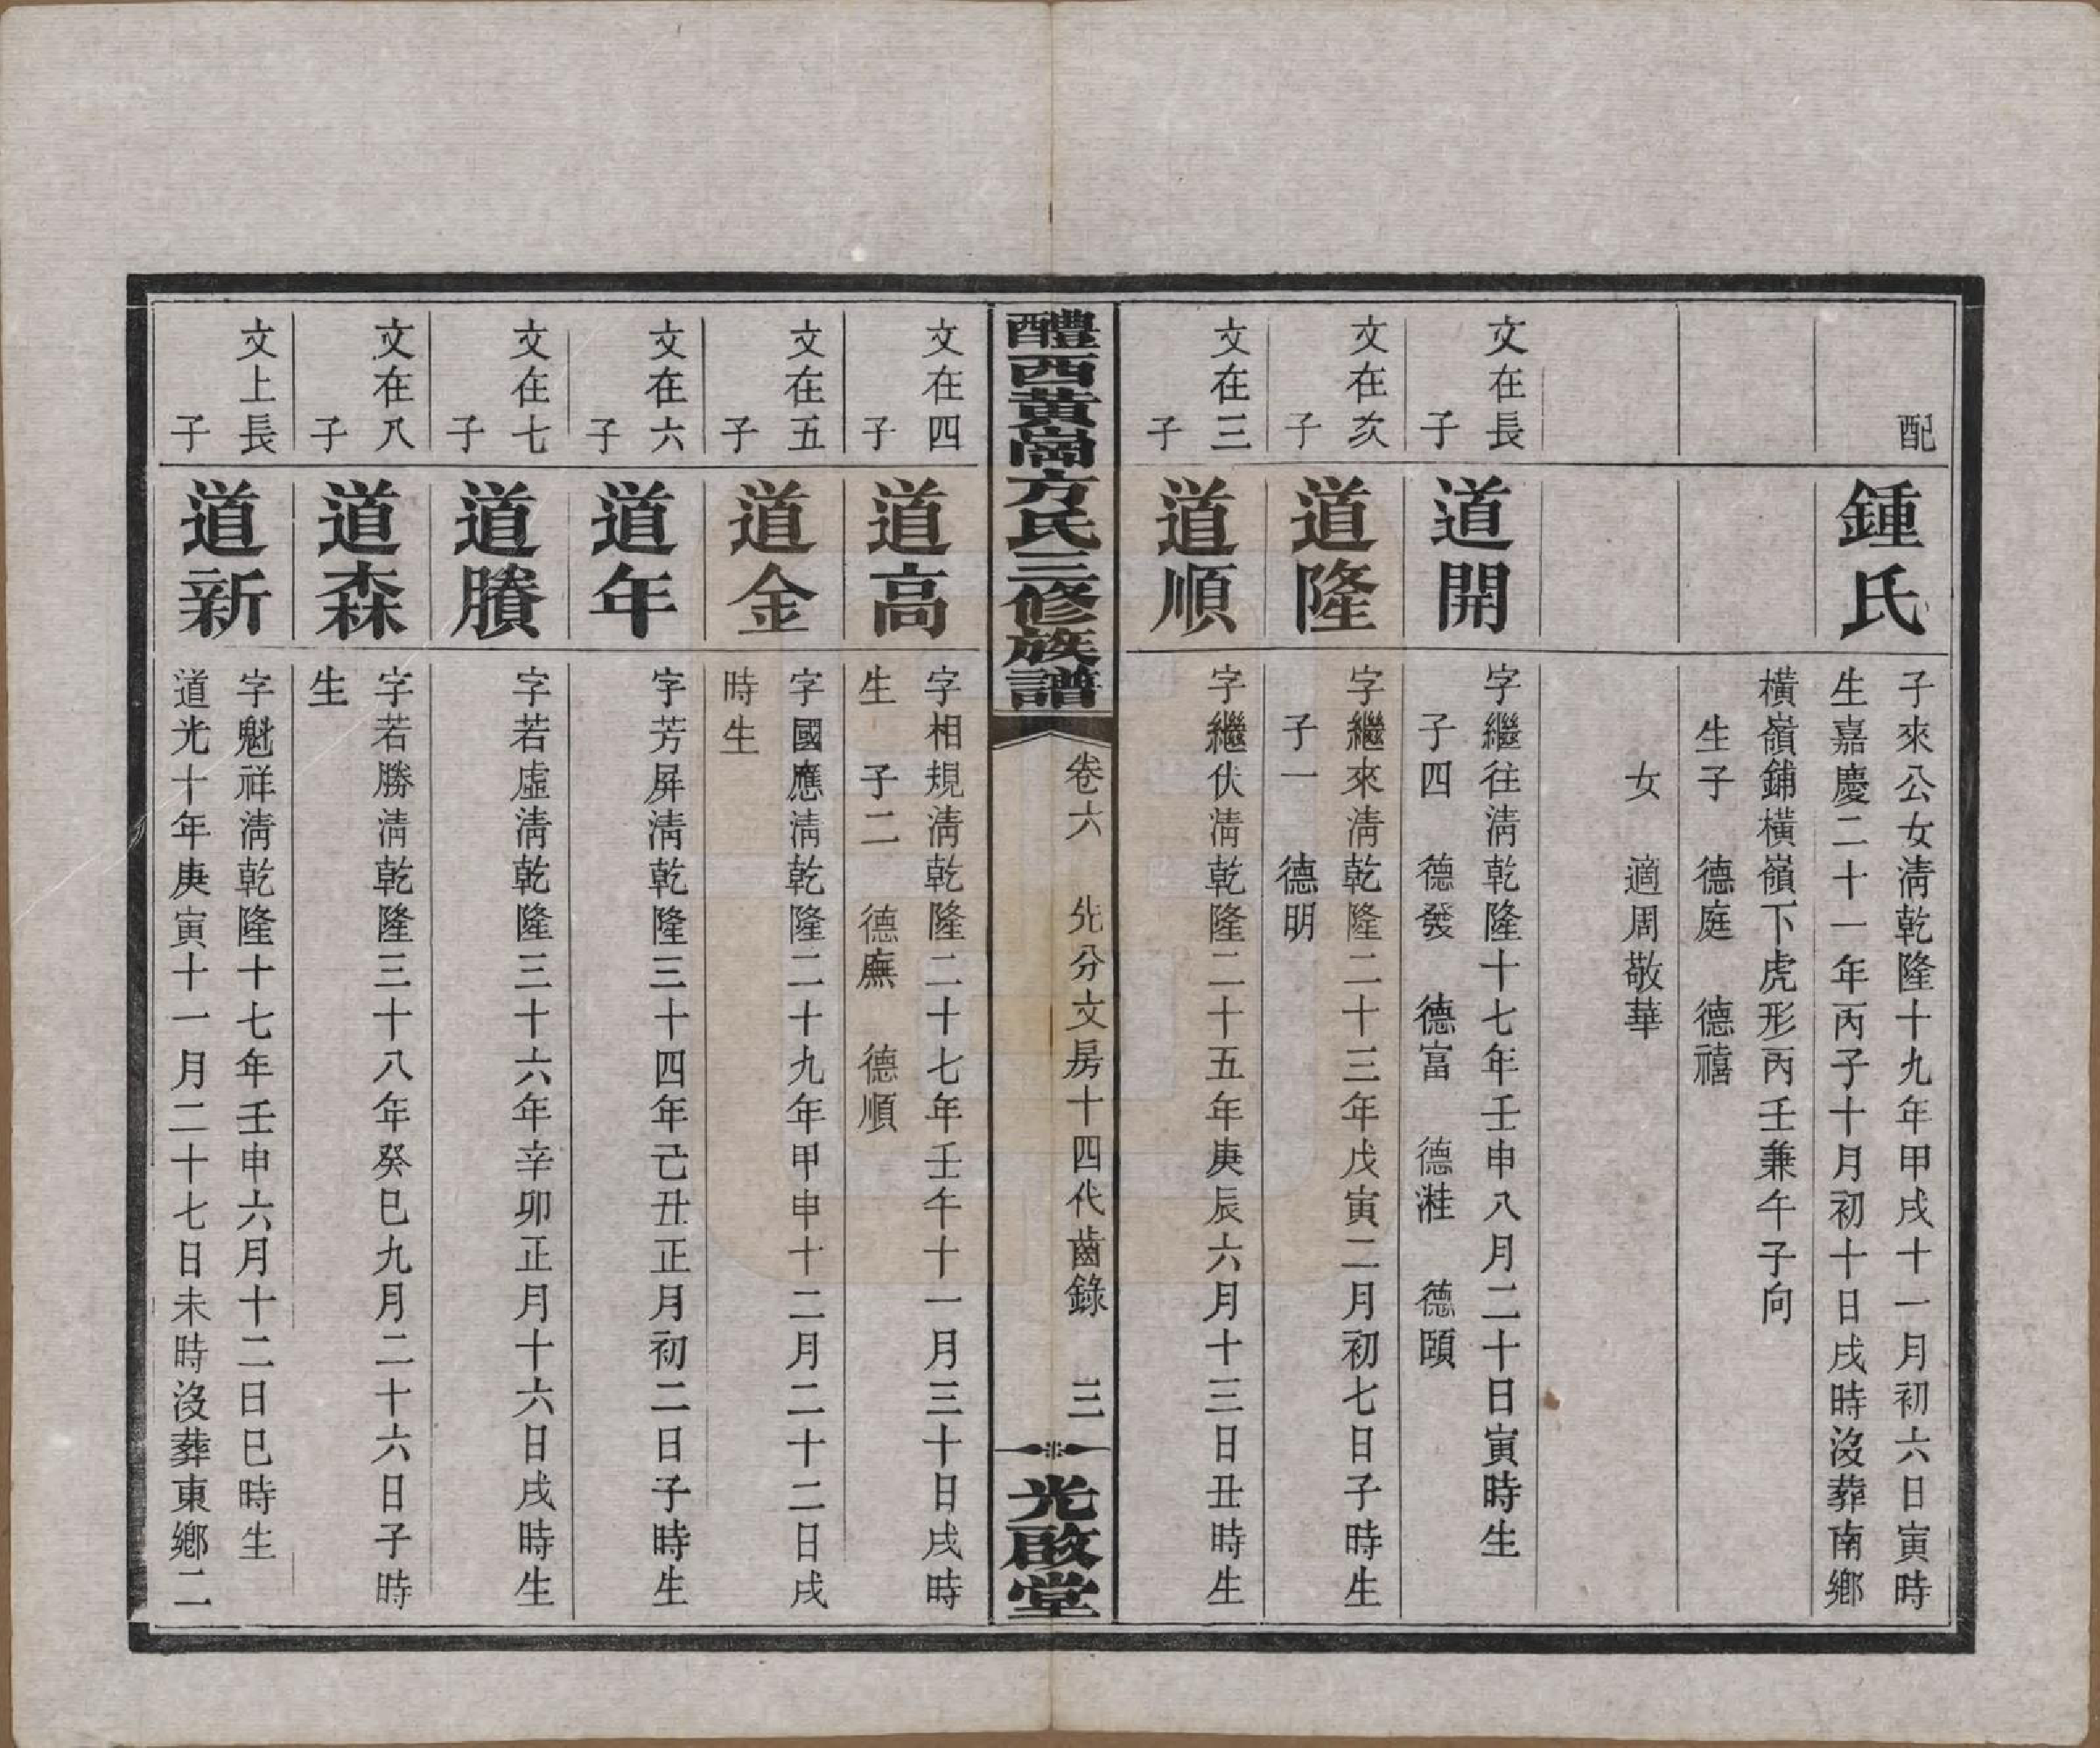 配
鍾氏
子來公女淸乾隆十九年甲戌十一月初六日寅時
生嘉慶二十一年丙子十月初十日戌時沒葬南鄉
橫嶺鋪橫嶺下虎形丙壬兼午子向
生子 德庭 德禧
女 適周敬華
文在長
子
道開
字繼往淸乾隆十七年壬申八月二十日寅時生
子四 德發 德富 德溎 德頤
文在次
子
道隆
字繼來淸乾隆二十三年戊寅二月初七日子時生
子一 德明
文在三
子
道順
字繼伏淸乾隆二十五年庚辰六月十三日丑時生
醴西黃崗方氏三修族譜
卷六 先分文房十四代齒錄 三
光啟堂
文在四
子
道高
字相規淸乾隆二十七年壬午十一月三十日戌時
生 子二 德廡 德順
文在五
子
道金
字國應淸乾隆二十九年甲申十二月二十二日戌
時生
文在六
子
道年
字芳屏淸乾隆三十四年己丑正月初二日子時生
文在七
子
道賸
字若虛淸乾隆三十六年辛卯正月十六日戌時生
文在八
子
道森
字若勝淸乾隆三十八年癸巳九月二十六日子時
生
文上長
子
道新
字魁祥淸乾隆十七年壬申六月十二日巳時生
道光十年庚寅十一月二十七日未時沒葬東鄉二